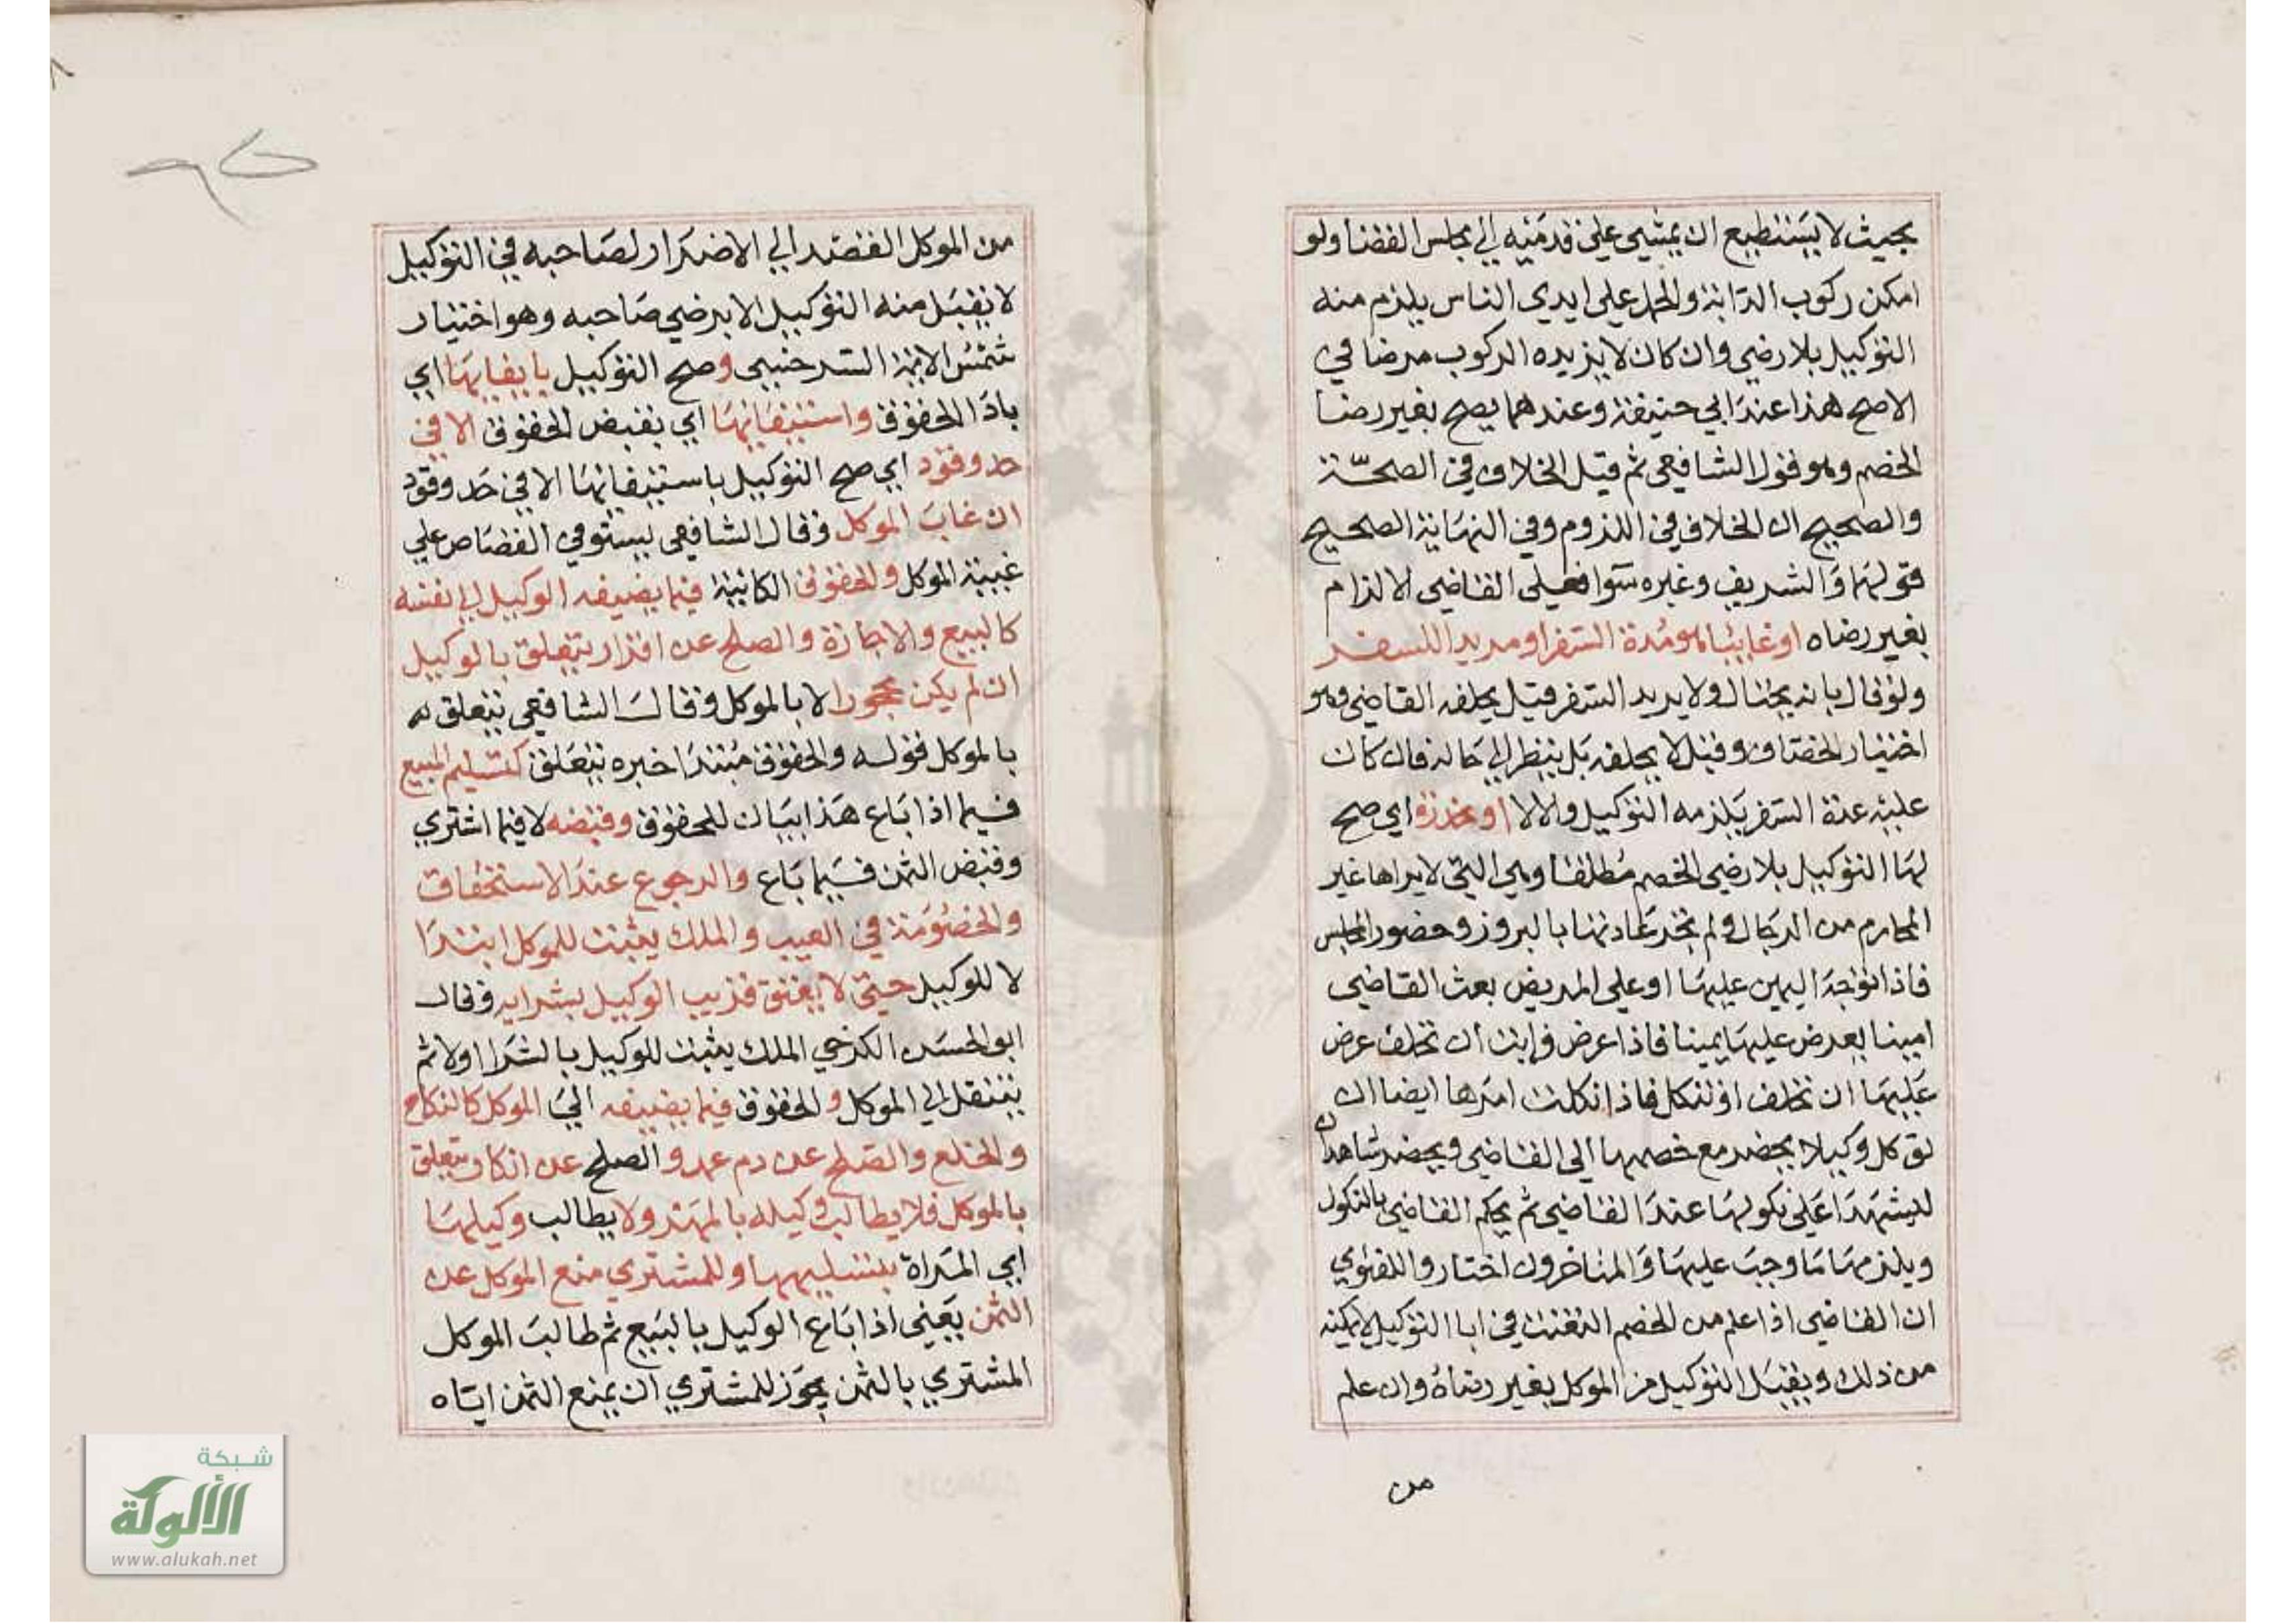 بحيث لا يستطيع ان يمشي علي قدميه الي مجلس القضا ولو
امكن ركوب الدابة والحمل علي ايدي الناس يلزم منه
التوكيل بلا رضي وان كان لا يزيده الركوب مرضا في
الاصح هذا عند ابي حنيفة وعندهما يصح بغير رضا
الخصم وهو قول الشافعي ثم قيل الخلاف في الصحة
والصحيح ان الخلاف في اللزوم وفي النهاية الصحيح
قولهما والشريف وغيره سوا فعلي القاضي الالزام
بغير رضاه او غايبا هو مدة السفر او مريد اللسفر
ولو قال بانه يحتال ولا يريد السفر قيل يحلفه القاضي وهو
اختيار الخصاف وقيل لا يحلفه بل ينظر الي حاله فان كان
عليه عدة السفر يلزمه التوكيل والا لا او مخدرة اي صح
لها التوكيل بلا رضي الخصم مطلقا وهي التي لا يراها غير
المحارم من الرجال ولم تجر عادتها بالبروز وحضور المجلس
فاذا توجه اليمين عليها او علي المريض بعث القاضي
امينا يعرض عليها يمينا فاذا اعرض فابت ان تحلف عرض
عليها ان تحلف او تنكل فاذا نكلت امرها ايضا ان
توكل وكيلا يحضر مع خصمها الي القاضي ويحضر شاهدان
ليشهدا علي نكولها عند القاضي ثم يحكم القاضي بالنكول
ويلزمها ما وجب عليها والمتاخرون اختاروا للفتوي
ان القاضي اذا علم من الخصم التعنت في ابا التوكيل لا يمكنه
من ذلك ويقبل التوكيل من الموكل بغير رضاه وان علم
من
من الموكل القصد الي الاضرار لصاحبه في التوكيل
لا يقبل منه التوكيل الا برضي صاحبه وهو اختيار
شمس الايمة السرخسي وصح التوكيل بايفايها اي
باداا الحقوق واستيفائها اي بقبض الحقوق الا في
حد وقود اي صح التوكيل باستيفائها الا في حد وقود
ان غاب الموكل وقال الشافعي يستوفي القصاص علي
غيبة الموكل والحقوق الكائنة فيما يضيفه الوكيل الي نفسه
كالبيع والاجازة والصلح عن اقرار تتعلق بالوكيل
ان لم يكن محجورا لا بالموكل وقال الشافعي تتعلق به
بالموكل قوله والحقوق مبتدا خبره تتعلق كتسليم المبيع
فيما اذا باع هذا بيان للحقوق وقبضه لا فيما اشتري
وقبض الثمن فيما باع والرجوع عند الاستحقاق
والخصومة في العيب والملك يثبت للموكل ابتدا
لا للوكيل حتي لا يعتق قريب الوكيل بشرايه وقال
ابو الحسن الكرخي الملك يثبت للوكيل بالشرا اولا ثم
ينتقل الي الموكل والحقوق فيما يضيفه الي الموكل كالنكاح
والخلع والصلح عن دم عمد والصلح عن انكار تتعلق
بالموكل فلا يطالب وكيله بالمهر ولا يطالب وكيلها
اي المراة بتسليمها وللمشتري منع الموكل عن
الثمن يعني اذا باع الوكيل بالبيع ثم طالب الموكل
المشتري بالثمن يجوز للمشتري ان يمنع الثمن اياه
شبكة
الألوكة
www.alukah.net